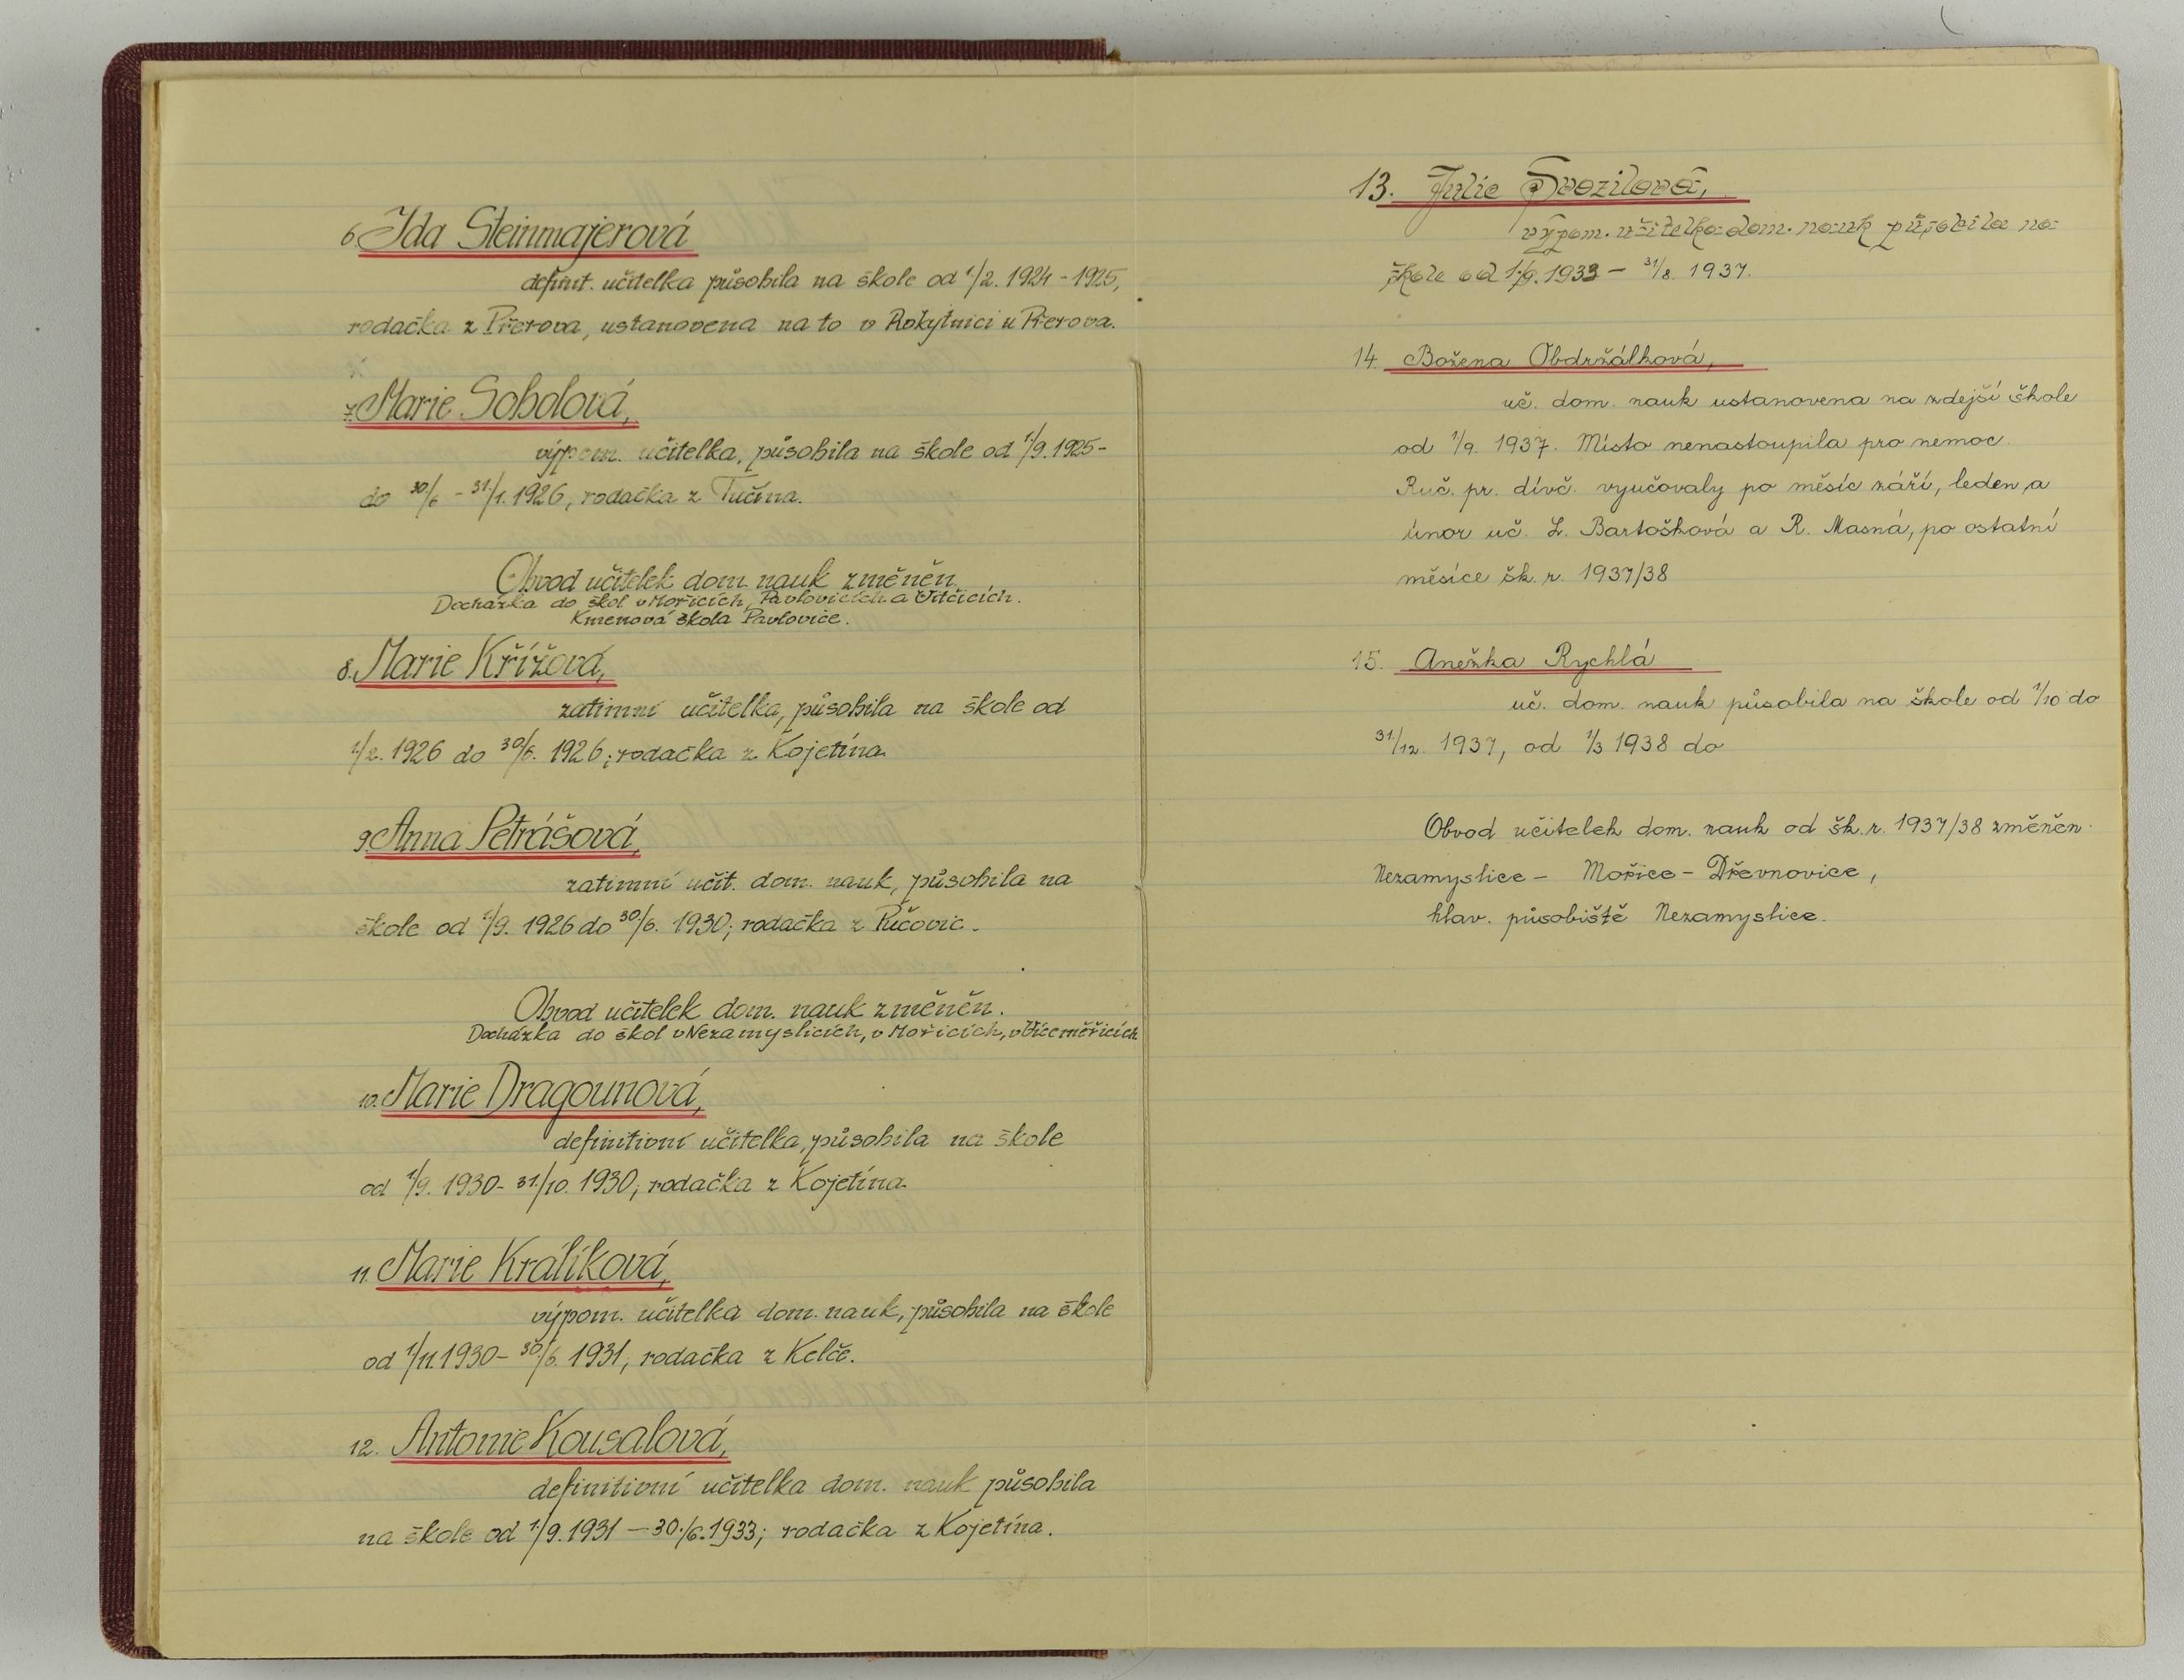 6. Ida Steinmajerová
definit. učitelka působila na škole od 1/2. 1924 - 1925,
rodačka z Přerova, ustanovena na to v Rokytnici u Přerova.
7. Marie Sobolová,
výpom. učitelka, působila na škole od 1/9. 1925 -
do 30/6 - 31./1. 1926, rodačka z Tučína.
Obvod učitelek dom. nauk změněn.
Docházka do škol v Mořicích, Pavlovicích a Vitčicích.
Kmenová škola Pavlovice.
8. Marie Křížová,
zatimní učitelka, působila na škole od
1/2. 1926 do 30/6. 1926; rodačka z Kojetína.
9. Anna Petrášová,
zatimní učit. dom. nauk, působila na
škole od 1/9. 1926 do 30./6. 1930; rodačka z
Obvod učitelek dom. nauk změněn.
Docházka do škol v Nezamyslicích, v Mořicích, v Víceměřicích
10. Marie Dragounová,
definitivní učitelka, působila na škole
od 1/9. 1930 - 31./10. 1930; rodačka z Kojetína.
11. Marie Králíková,
výpom. učitelka dom. nauk, působila na škole
od 1/11. 1930 - 30./6. 1931, rodačka z Kelče.
12. Antonie Kousalová,
definitivní učitelka dom. nauk působila
na škole od 1./9. 1931 - 30./6. 1933; rodačka z Kojetína.
13. Julie Svozilová,
výpom. učitelka dom. nauk působila na
škole od 1./9. 1933 - 31/8. 1937.
14. Božena Obdržálková,
uč. dom. nauk ustanovena na zdejší škole
od 1/9. 1937. Místo nenastoupila pro nemoc.
Ruč. pr. dívč. vyučovaly po měsíc září, leden, a
únor uč. L. Bartošková a R. Masná, po ostatní
měsíce šk. r. 1937/38
15. Anežka Rychlá
uč. dom. nauk působila na škole od 1/10 do
31./12. 1937, od 1/3 1938 do
Obvod učitelek dom. nauk od šk. r. 1937/38 změněn.
Nezamyslice - Mořice - Dřevnovice,
hlav. působiště Nezamyslice.